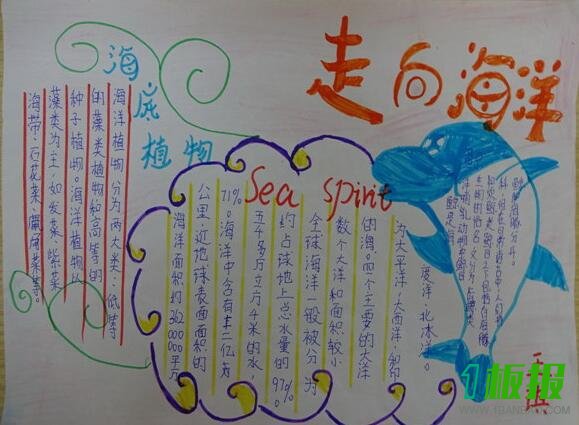 走向海洋
海底植物
海洋植物分为两大类：低等
的藻类植物和高等的
种子植物。海洋植物以
藻类为主，如发菜、紫菜
海带、石花菜、鹧鸪菜等。
Sea Spirit
海洋面积约362000000平方
公里，近地球表面面积的
71%。海洋中含有十三亿
五千多万立方千米的水，
约占球地上总水量的97%
全球海洋一般被分为
数个大洋和面积较小
的海。四个主要的大洋
为太平洋、大西洋、和印
度洋、北冰洋。
1板报
WWW.1BANBAO.COM